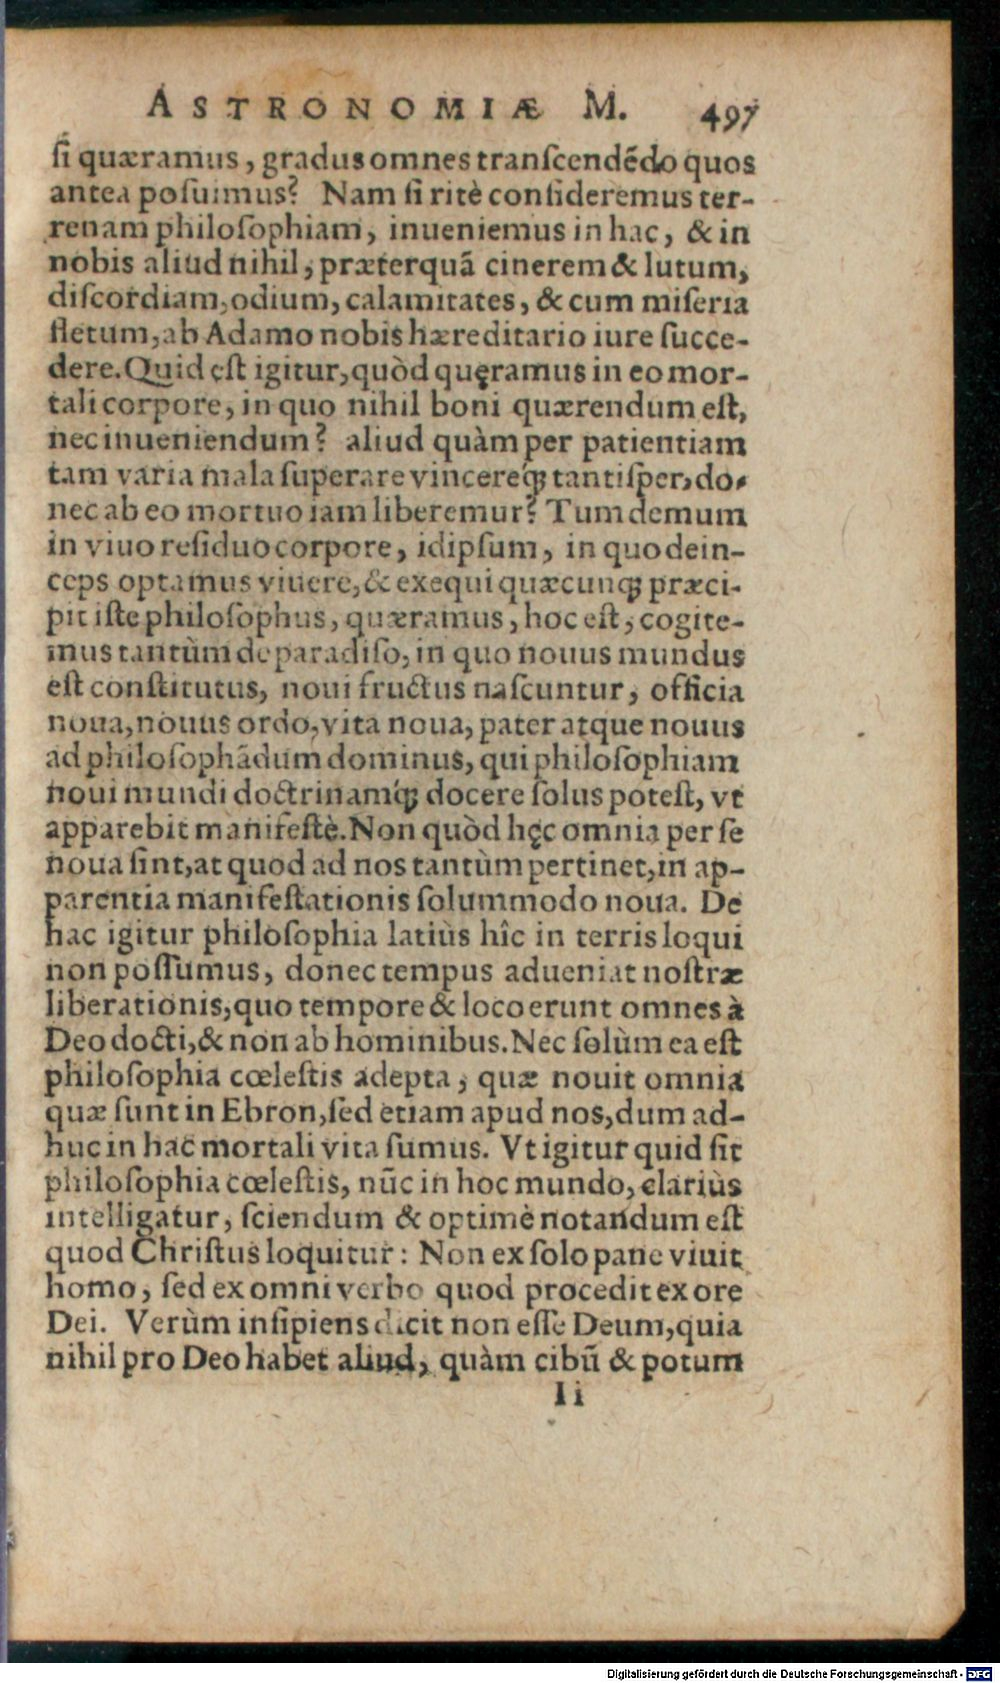 ASTRONOMIÆ M. 497
ſi quæramus, gradus omnes tranſcendẽdo quos
antea poſuimus? Nam ſi ritè conſideremus ter-
renam philoſophiam, inueniemus in hac, & in
nobis aliud nihil, præterquã cinerem & lutum,
diſcordiam, odium, calamitates, & cum miſeria
fletum, ab Adamo nobis hæreditario iure ſucce-
dere. Quid eſt igitur, quòd quęramus in eo mor-
tali corpore, in quo nihil boni quærendum eſt,
nec inueniendum? aliud quàm per patientiam
tam varia mala ſuperare vincereq́; tantiſper, do-
nec ab eo mortuo iam liberemur? Tum demum
in viuo reſiduo corpore, idipſum, in quo dein-
ceps optamus viuere, & exequi quæcunq; præci-
pit iſte philoſophus, quæramus, hoc eſt, cogite-
mus tantùm de paradiſo, in quo nouus mundus
eſt conſtitutus, noui fructus naſcuntur, officia
noua, nouus ordo, vita noua, pater atque nouus
ad philoſophãdum dominus, qui philoſophiam
noui mundi doctrinamq́; docere ſolus poteſt, vt
apparebit manifeſtè. Non quòd hęc omnia per ſe
noua ſint, at quod ad nos tantùm pertinet, in ap-
parentia manifeſtationis ſolummodo noua. De
hac igitur philoſophia latiùs hîc in terris loqui
non poſſumus, donec tempus adueniat noſtræ
liberationis, quo tempore & loco erunt omnes à
Deo docti, & non ab hominibus. Nec ſolùm ea eſt
philoſophia cœleſtis adepta, quæ nouit omnia
quæ ſunt in Ebron, ſed etiam apud nos, dum ad-
huc in hac mortali vita ſumus. Vt igitur quid ſit
philoſophia cœleſtis, nũc in hoc mundo, clariùs
intelligatur, ſciendum & optimè notandum eſt
quod Chriſtus loquitur: Non ex ſolo pane viuit
homo, ſed ex omni verbo quod procedit ex ore
Dei. Verùm inſipiens dicit non eſſe Deum, quia
nihil pro Deo habet aliud, quàm cibũ & potum
Ii
Digitalisierung gefördert durch die Deutsche Forschungsgemeinschaft - DFG